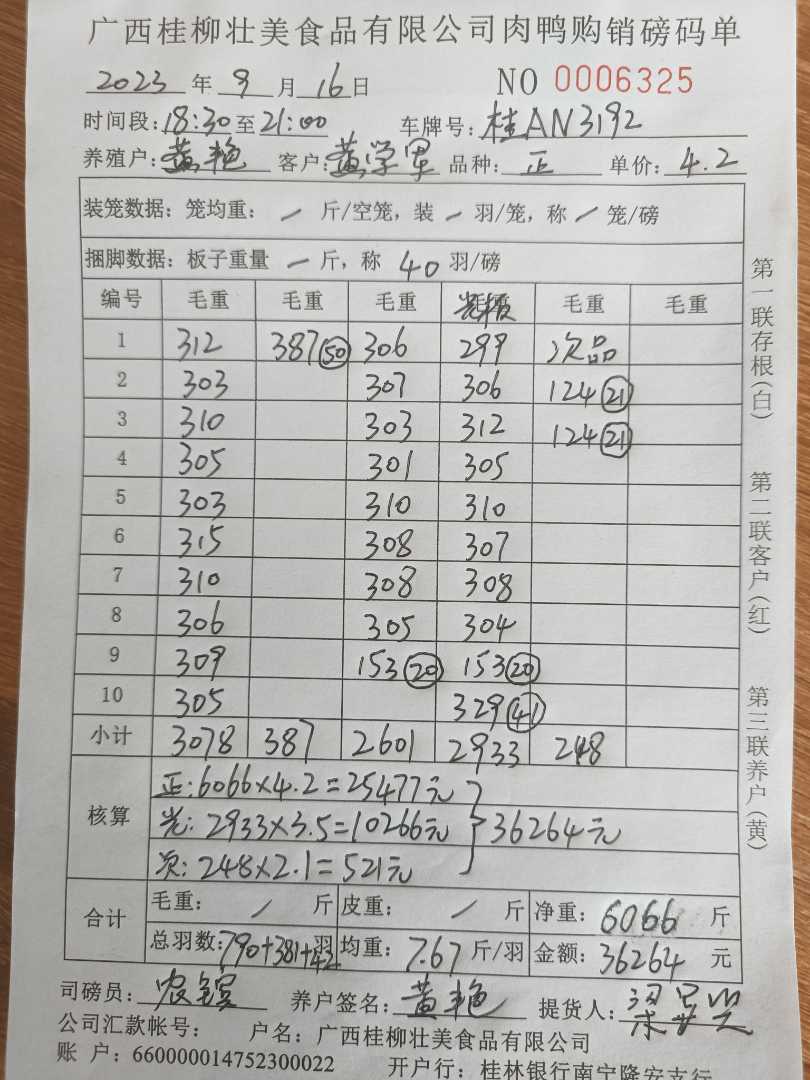 广西桂柳壮美食品有限公司肉鸭购销磅码单
2023 年 9 月 16 日 NO 0006325
时间段:18:30 至 21:00 车牌号:桂AN3192
养殖户:黄艳 客户:黄学军 品种:正 单价:4.2
装笼数据:笼均重: / 斤/空笼,装 / 羽/笼,称 / 笼/磅
捆脚数据:板子重量 一 斤,称 40 羽/磅
编号 毛重 毛重 毛重 毛重 毛重
1 312 387(50) 306 299 次品
2 303 307 306 124(21)
3 310 303 312 124(21)
4 305 301 305
5 303 310 310
6 315 308 307
7 310 308 308
8 306 305 304
9 309 153(20) 153(20)
10 305 329(41)
小计 3078 387 2601 2933 248
核算
正:6066×4.2=25477元
光:2933×3.5=10266元 } 36264元
次:248×2.1=521元
合计
毛重: / 斤 皮重: / 斤 净重:6066 斤
总羽数:790+381+42 羽 均重:7.67 斤/羽 金额:36264 元
司磅员: 养户签名:黄艳 提货人:
公司汇款帐号: 户名:广西桂柳壮美食品有限公司
账 户:660000014752300022 开户行:桂林银行南宁隆安支行
第一联存根(白)
第二联客户(红)
第三联养户(黄)